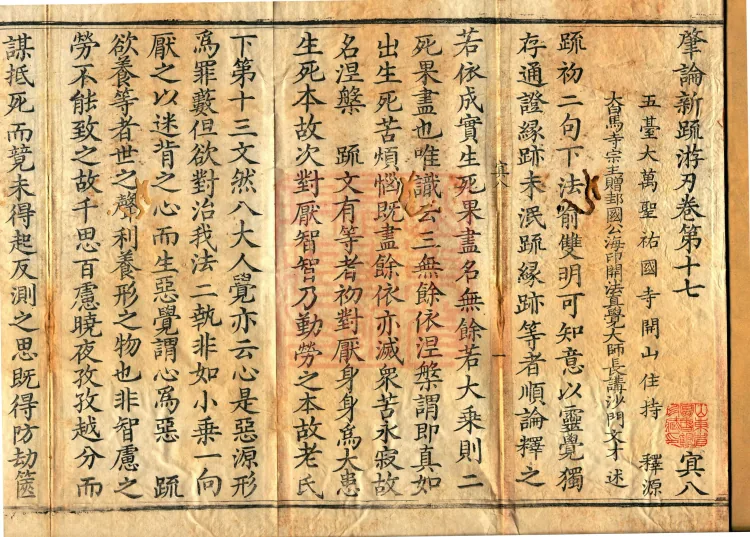 肇論新疏游刃卷第十七 㝠八
五臺大萬聖祐國寺開山住持 釋源
大白馬寺宗主贈邽國公海印開法真覺大師長講沙門文才 述
疏初二句下法喻雙明可知意以靈覺獨
存通證緣跡未泯疏緣跡等者順論釋之
若依成實生死果盡名無餘若大乘則二
死果盡也唯識云三無餘依涅槃謂即真如
出生死苦煩惱既盡餘依亦滅衆苦永寂故
名涅槃 疏文有等者初對厭身身爲大患
生死本故次對厭智智乃勤勞之本故老氏
㝠八 一
下第十三文然八大人覺亦云心是惡源形
爲罪藪但欲對治我法二執非如小乘一向
厭之以迷背之心而生惡覺謂心爲惡 疏
欲養等者世之聲利養形之物也非智慮之
勞不能致之故千思百慮曉夜孜孜越分而
謀抵死而竟未得起反測之思既得防劫篋